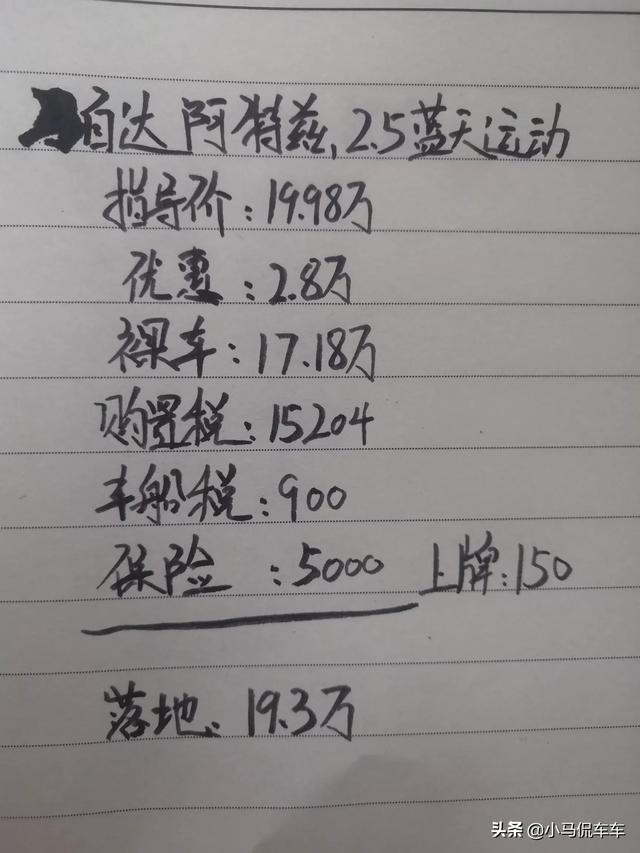 自达 阿特兹, 2.5蓝天运动
指导价: 19.98万
优惠: 2.8万
裸车: 17.18万
购置税: 15204
车船税: 900
保险: 5000 上牌: 150
落地: 19.3万
头条 @小马侃车车